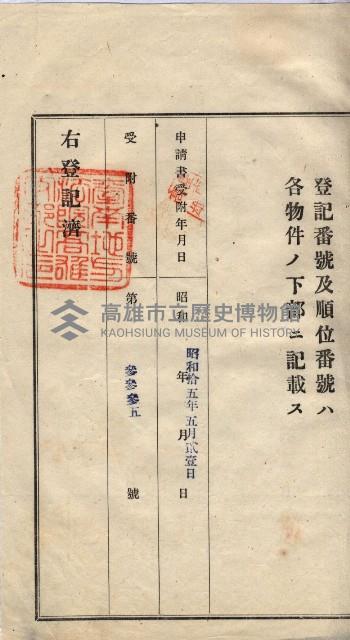 登記番號及順位番號ハ
各物件ノ下部ニ記載ス
申請書受附年月日
昭和 年 月 日
昭和拾五年五月貳壹日
受附番號
第 號
參參參五
右登記濟
高雄市立歷史博物館
KAOHSIUNG MUSEUM OF HISTORY